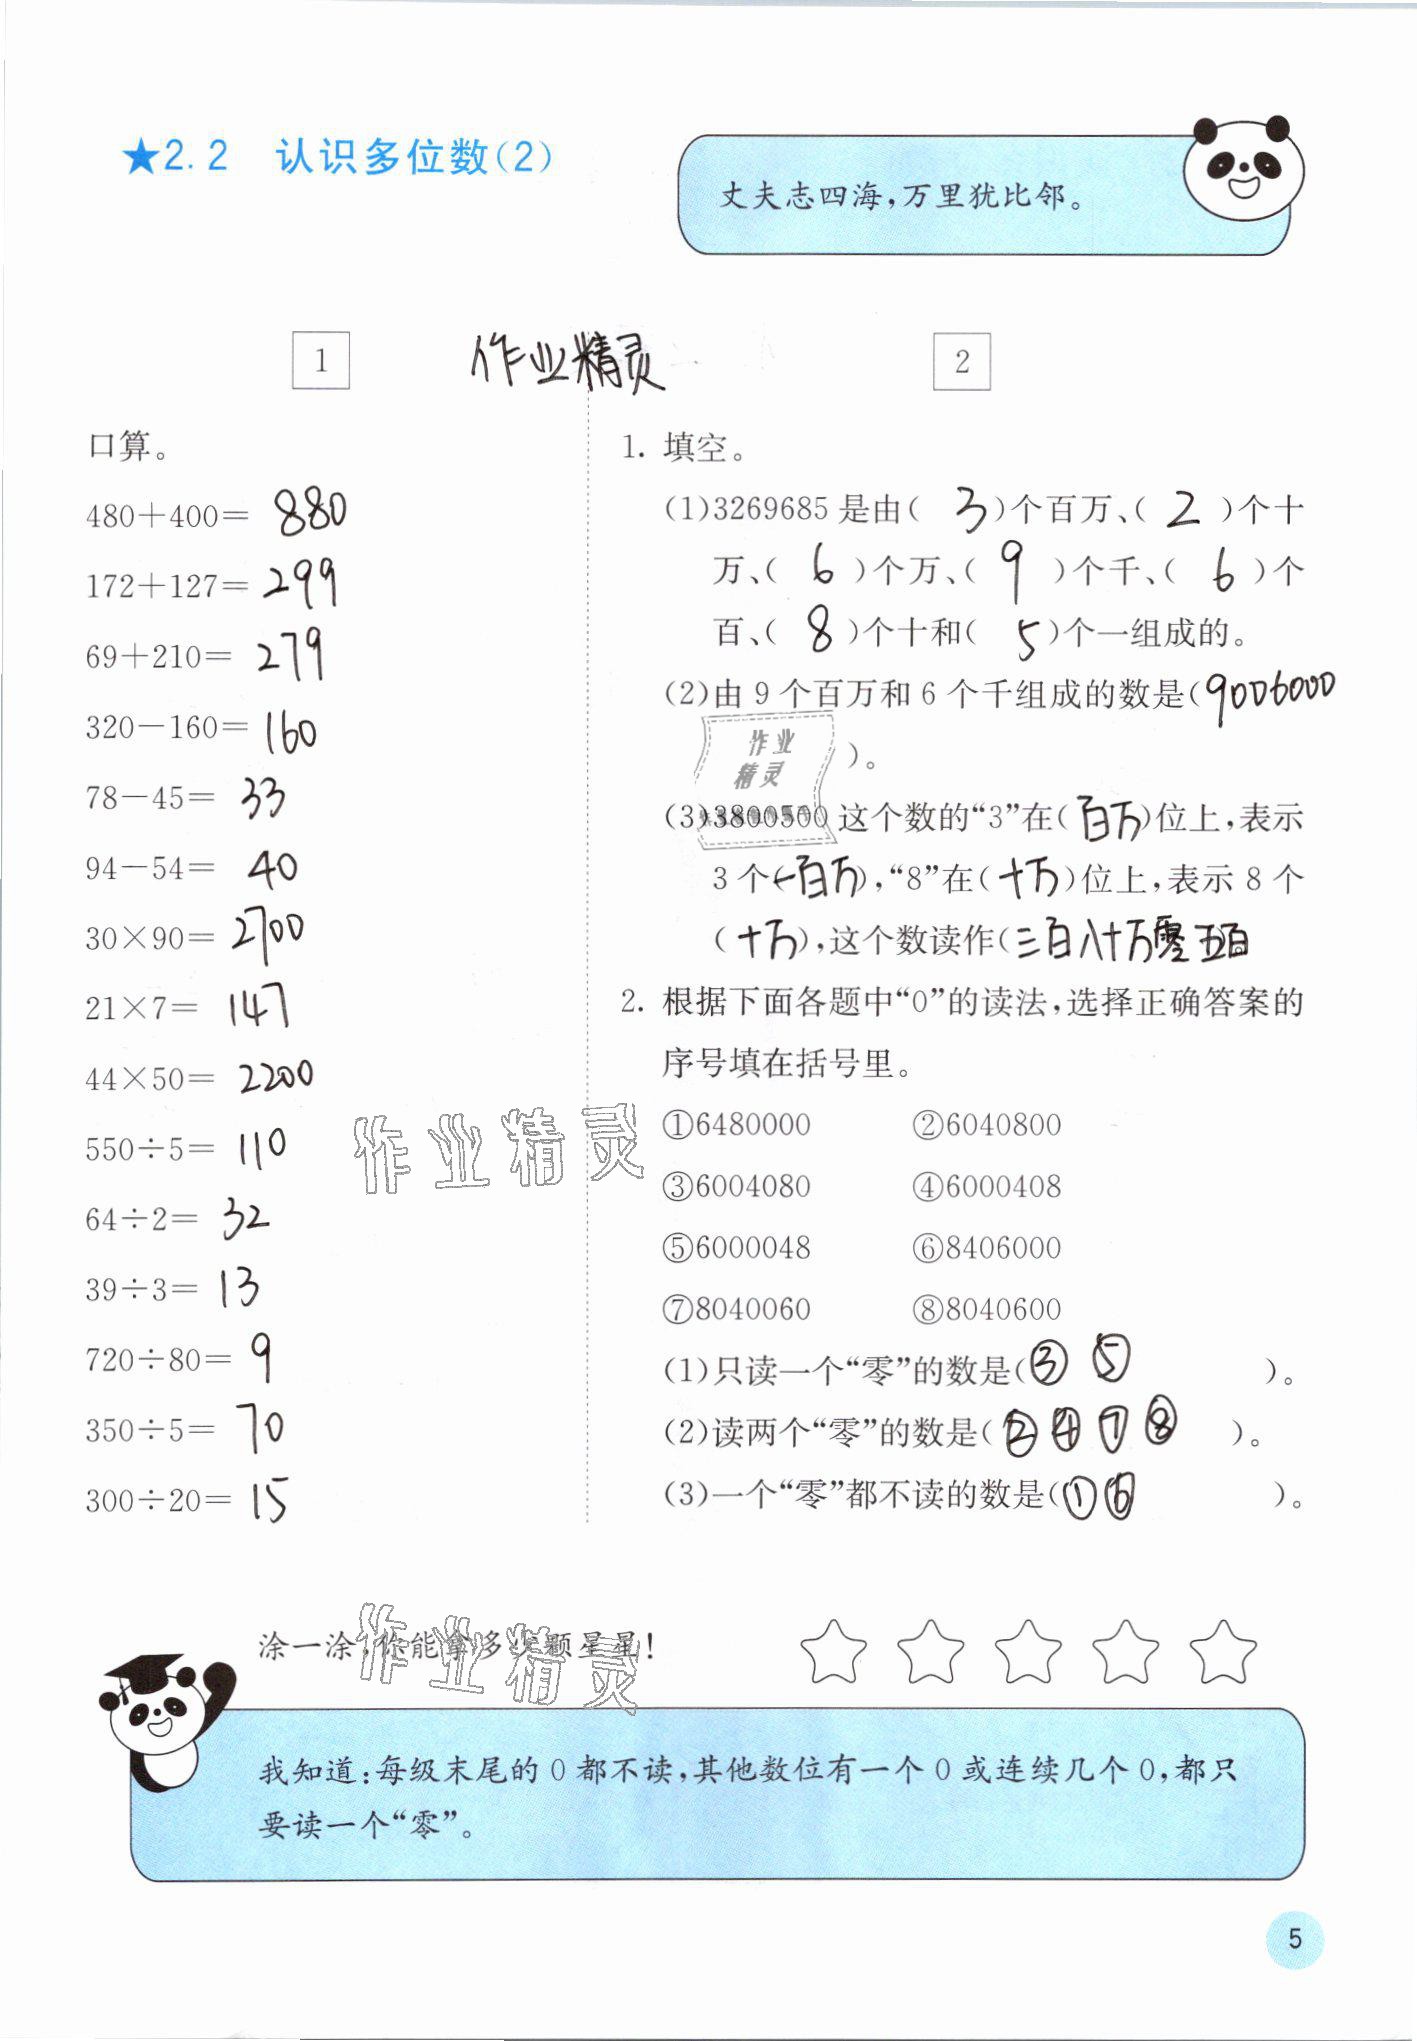 ★2.2 认识多位数(2)
丈夫志四海,万里犹比邻。
1
作业精灵
2
口算。
480+400= 880
172+127= 299
69+210= 279
320-160= 160
78-45= 33
94-54= 40
30×90= 2700
21×7= 147
44×50= 2200
550÷5= 110
64÷2= 32
39÷3= 13
720÷80= 9
350÷5= 70
300÷20= 15
1. 填空。
(1)3269685是由( 3 )个百万、( 2 )个十
万、( 6 )个万、( 9 )个千、( 6 )个
百、( 8 )个十和( 5 )个一组成的。
(2)由9个百万和6个千组成的数是(9006000
)。
作业
精灵
(3)3800500这个数的“3”在(百万)位上,表示
3个(一百万),“8”在(十万)位上,表示8个
(十万),这个数读作(三百八十万零五百
2. 根据下面各题中“0”的读法,选择正确答案的
序号填在括号里。
①6480000 ②6040800
③6004080 ④6000408
⑤6000048 ⑥8406000
⑦8040060 ⑧8040600
(1)只读一个“零”的数是(③ ⑤ )。
(2)读两个“零”的数是(② ④ ⑦ ⑧ )。
(3)一个“零”都不读的数是(① ⑥ )。
作业精灵
涂一涂,你能拿多少颗星星!
作业精灵
我知道:每级末尾的0都不读,其他数位有一个0或连续几个0,都只
要读一个“零”。
5